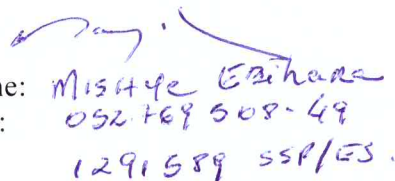 ne: MISHYE EBihara
: 052 769 508-49
1291589 SSP/ES.